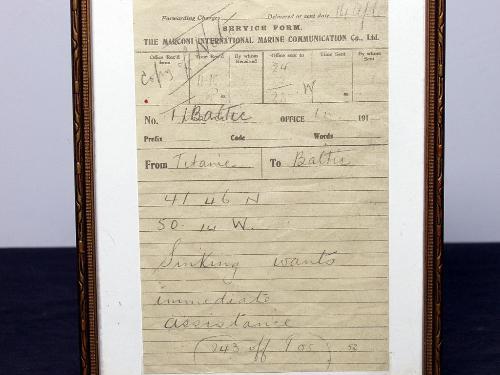 Forwarding Charges Delivered or sent date 14/4/12
SERVICE FORM.
THE MARCONI INTERNATIONAL MARINE COMMUNICATION Co., Ltd.
Office Rec'd from Time Rec'd By whom Received Office sent to Time Sent By whom Sent
Copy
W
No. 1/Baltic OFFICE 191
Prefix Code Words
From Titanic To Baltic
41 46 N
50 . 14 W.
Sinking wants
immediate
assistance
(243 off 905) 52